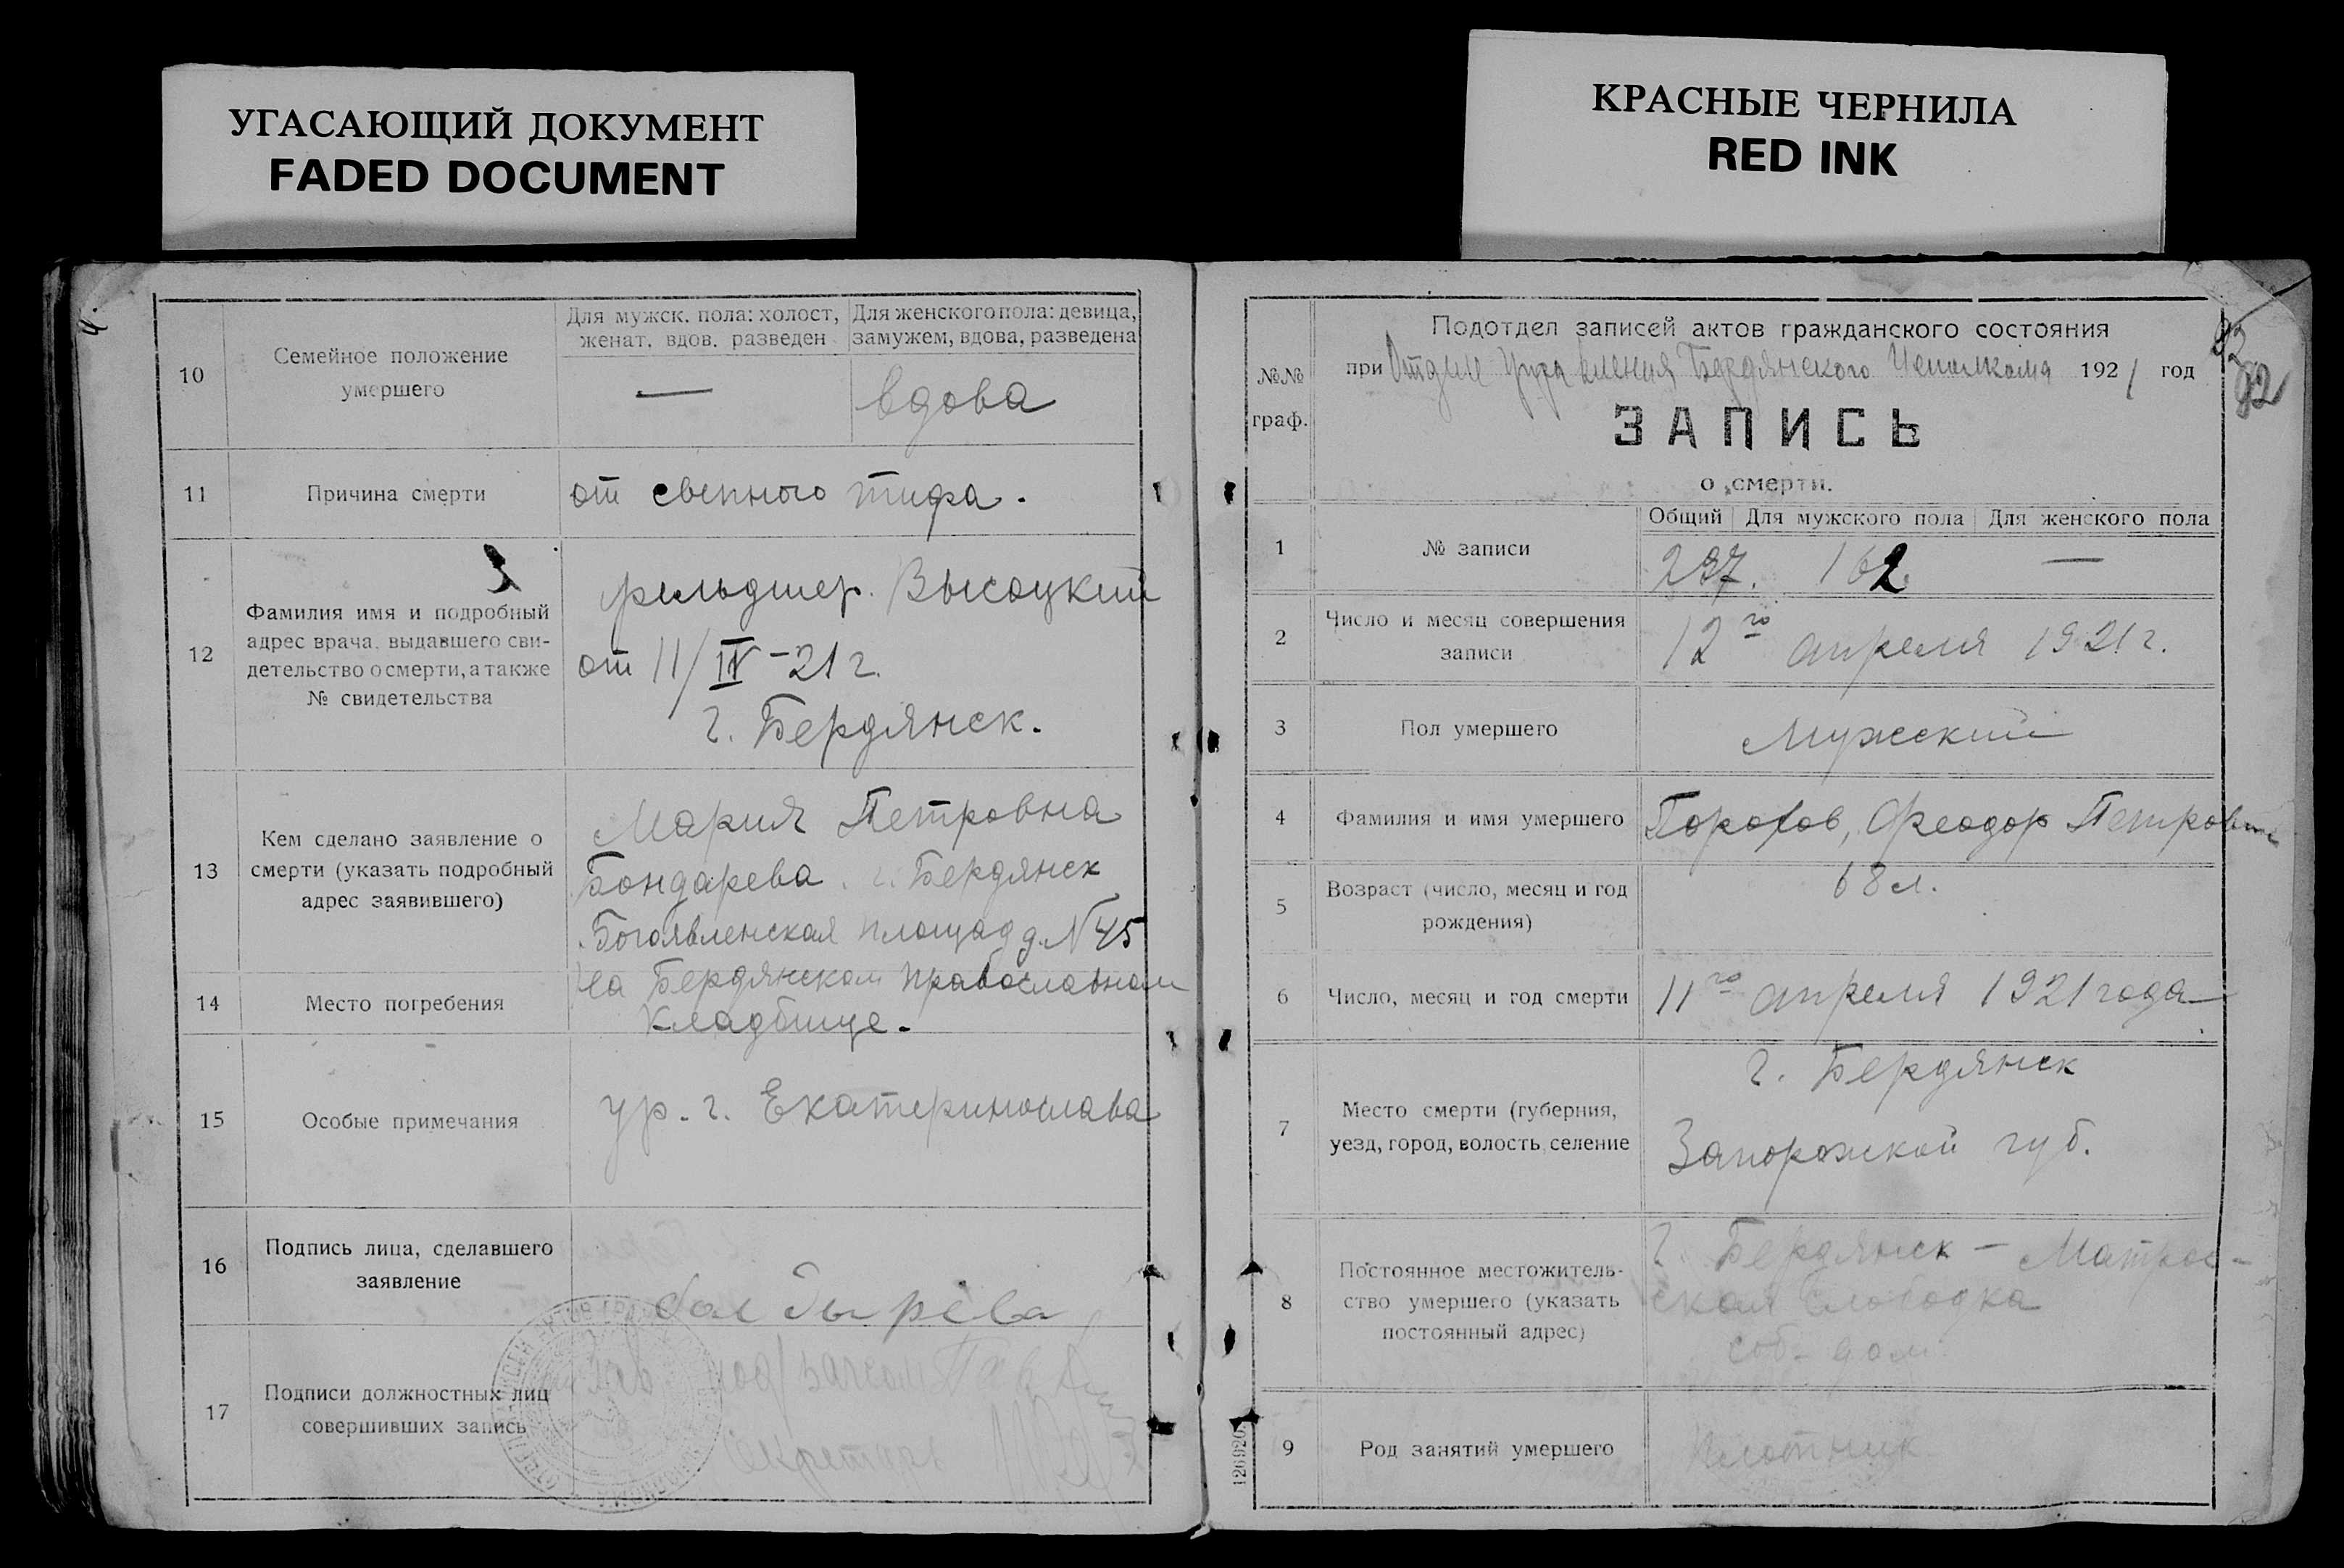 УГАСАЮЩИЙ ДОКУМЕНТ
FADED DOCUMENT
КРАСНЫЕ ЧЕРНИЛА
RED INK
10
Семейное положение
умершего
Для мужск. пола: холост,
женат, вдов. разведен
—
Для женского пола: девица,
замужем, вдова, разведена
вдова
11
Причина смерти
от сыпного тифа.
12
Фамилия имя и подробный
адрес врача, выдавшего сви-
детельство о смерти, а также
№ свидетельства
фельдшер. Высоцкий
от 11/IV-21 г.
г. Бердянск.
13
Кем сделано заявление о
смерти (указать подробный
адрес заявившего)
Мария Петровна
Бондарева. г. Бердянск
Богоявленская площад д. № 45
14
Место погребения
На Бердянском православном
кладбище.
15
Особые примечания
ур. г. Екатеринослава
16
Подпись лица, сделавшего
заявление
17
Подписи должностных лиц
совершивших запись
Секретарь
92
92
№№
граф.
Подотдел записей актов гражданского состояния
при Отделе Управления Бердянского Исполкома 1921 год
ЗАПИСЬ
о смерти.
1
№ записи
Общий
Для мужского пола
Для женского пола
237. 162. —
2
Число и месяц совершения
записи
12го апреля 1921 г.
3
Пол умершего
Мужский
4
Фамилия и имя умершего
Феодор Петрович
5
Возраст (число, месяц и год
рождения)
68 л.
6
Число, месяц и год смерти
11го апреля 1921 года
7
Место смерти (губерния,
уезд, город, волость, селение
г. Бердянск
Запорожской губ.
8
Постоянное местожитель-
ство умершего (указать
постоянный адрес)
г. Бердянск — Матрос-
ская слободка
соб. дом.
9
Род занятий умершего
плотник
1269207